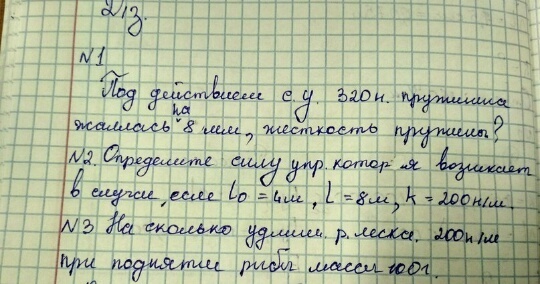 Д/з.
N1
Под действием с.у. 320н. пружинина
на
жалась 8 мм, жесткость пружины?
N2. Определите силу упр. котор я возникает
в случаи, если l₀ = 4м, L = 8м, k = 200н/м.
N3 На сколько удлин. р. леска. 200н/м
при поднятии рыбы массы 100г.